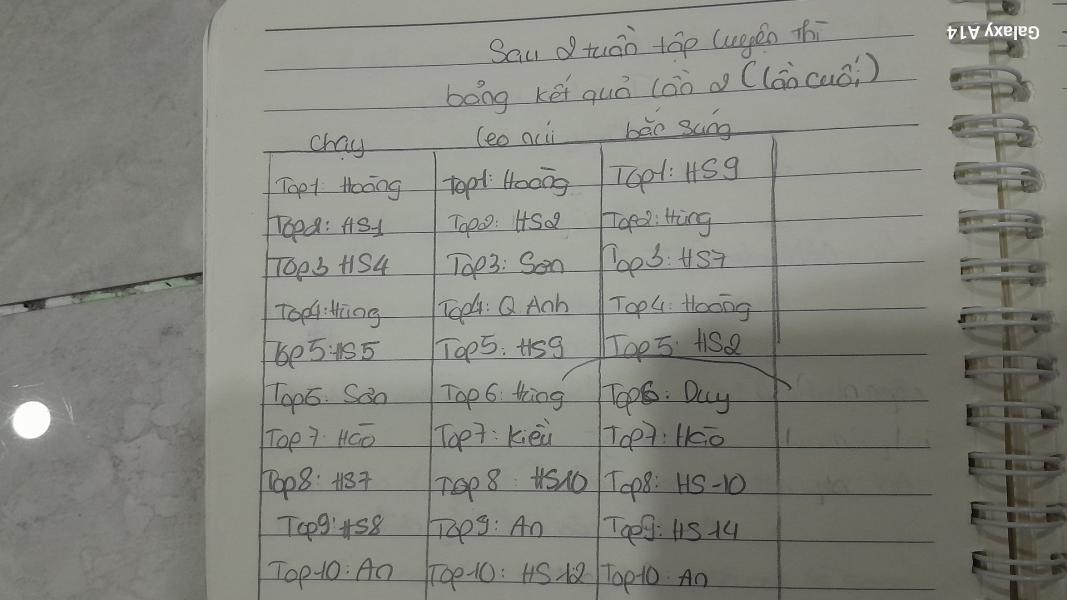 Galaxy A14
Sau 2 tuần tập luyện thì
bảng kết quả lần 2 (lần cuối)
chạy leo núi bắn súng
Top1: Hoàng Top1: Hoàng Top1: HS9
Top2: HS1 Top2: HS2 Top2: Hùng
Top3 HS4 Top3: Sơn Top3: HS7
Top4: Hùng Top4: Q Anh Top4: Hoàng
Top5: HS5 Top5: HS9 Top5: HS2
Top6: Sơn Top6: Hùng Top6: Duy
Top7: Hào Top7: Kiều Top7: Hào
Top8: HS7 Top8: HS10 Top8: HS-10
Top9: HS8 Top9: An Top9: HS-14
Top-10: An Top-10: HS-12 Top-10: An